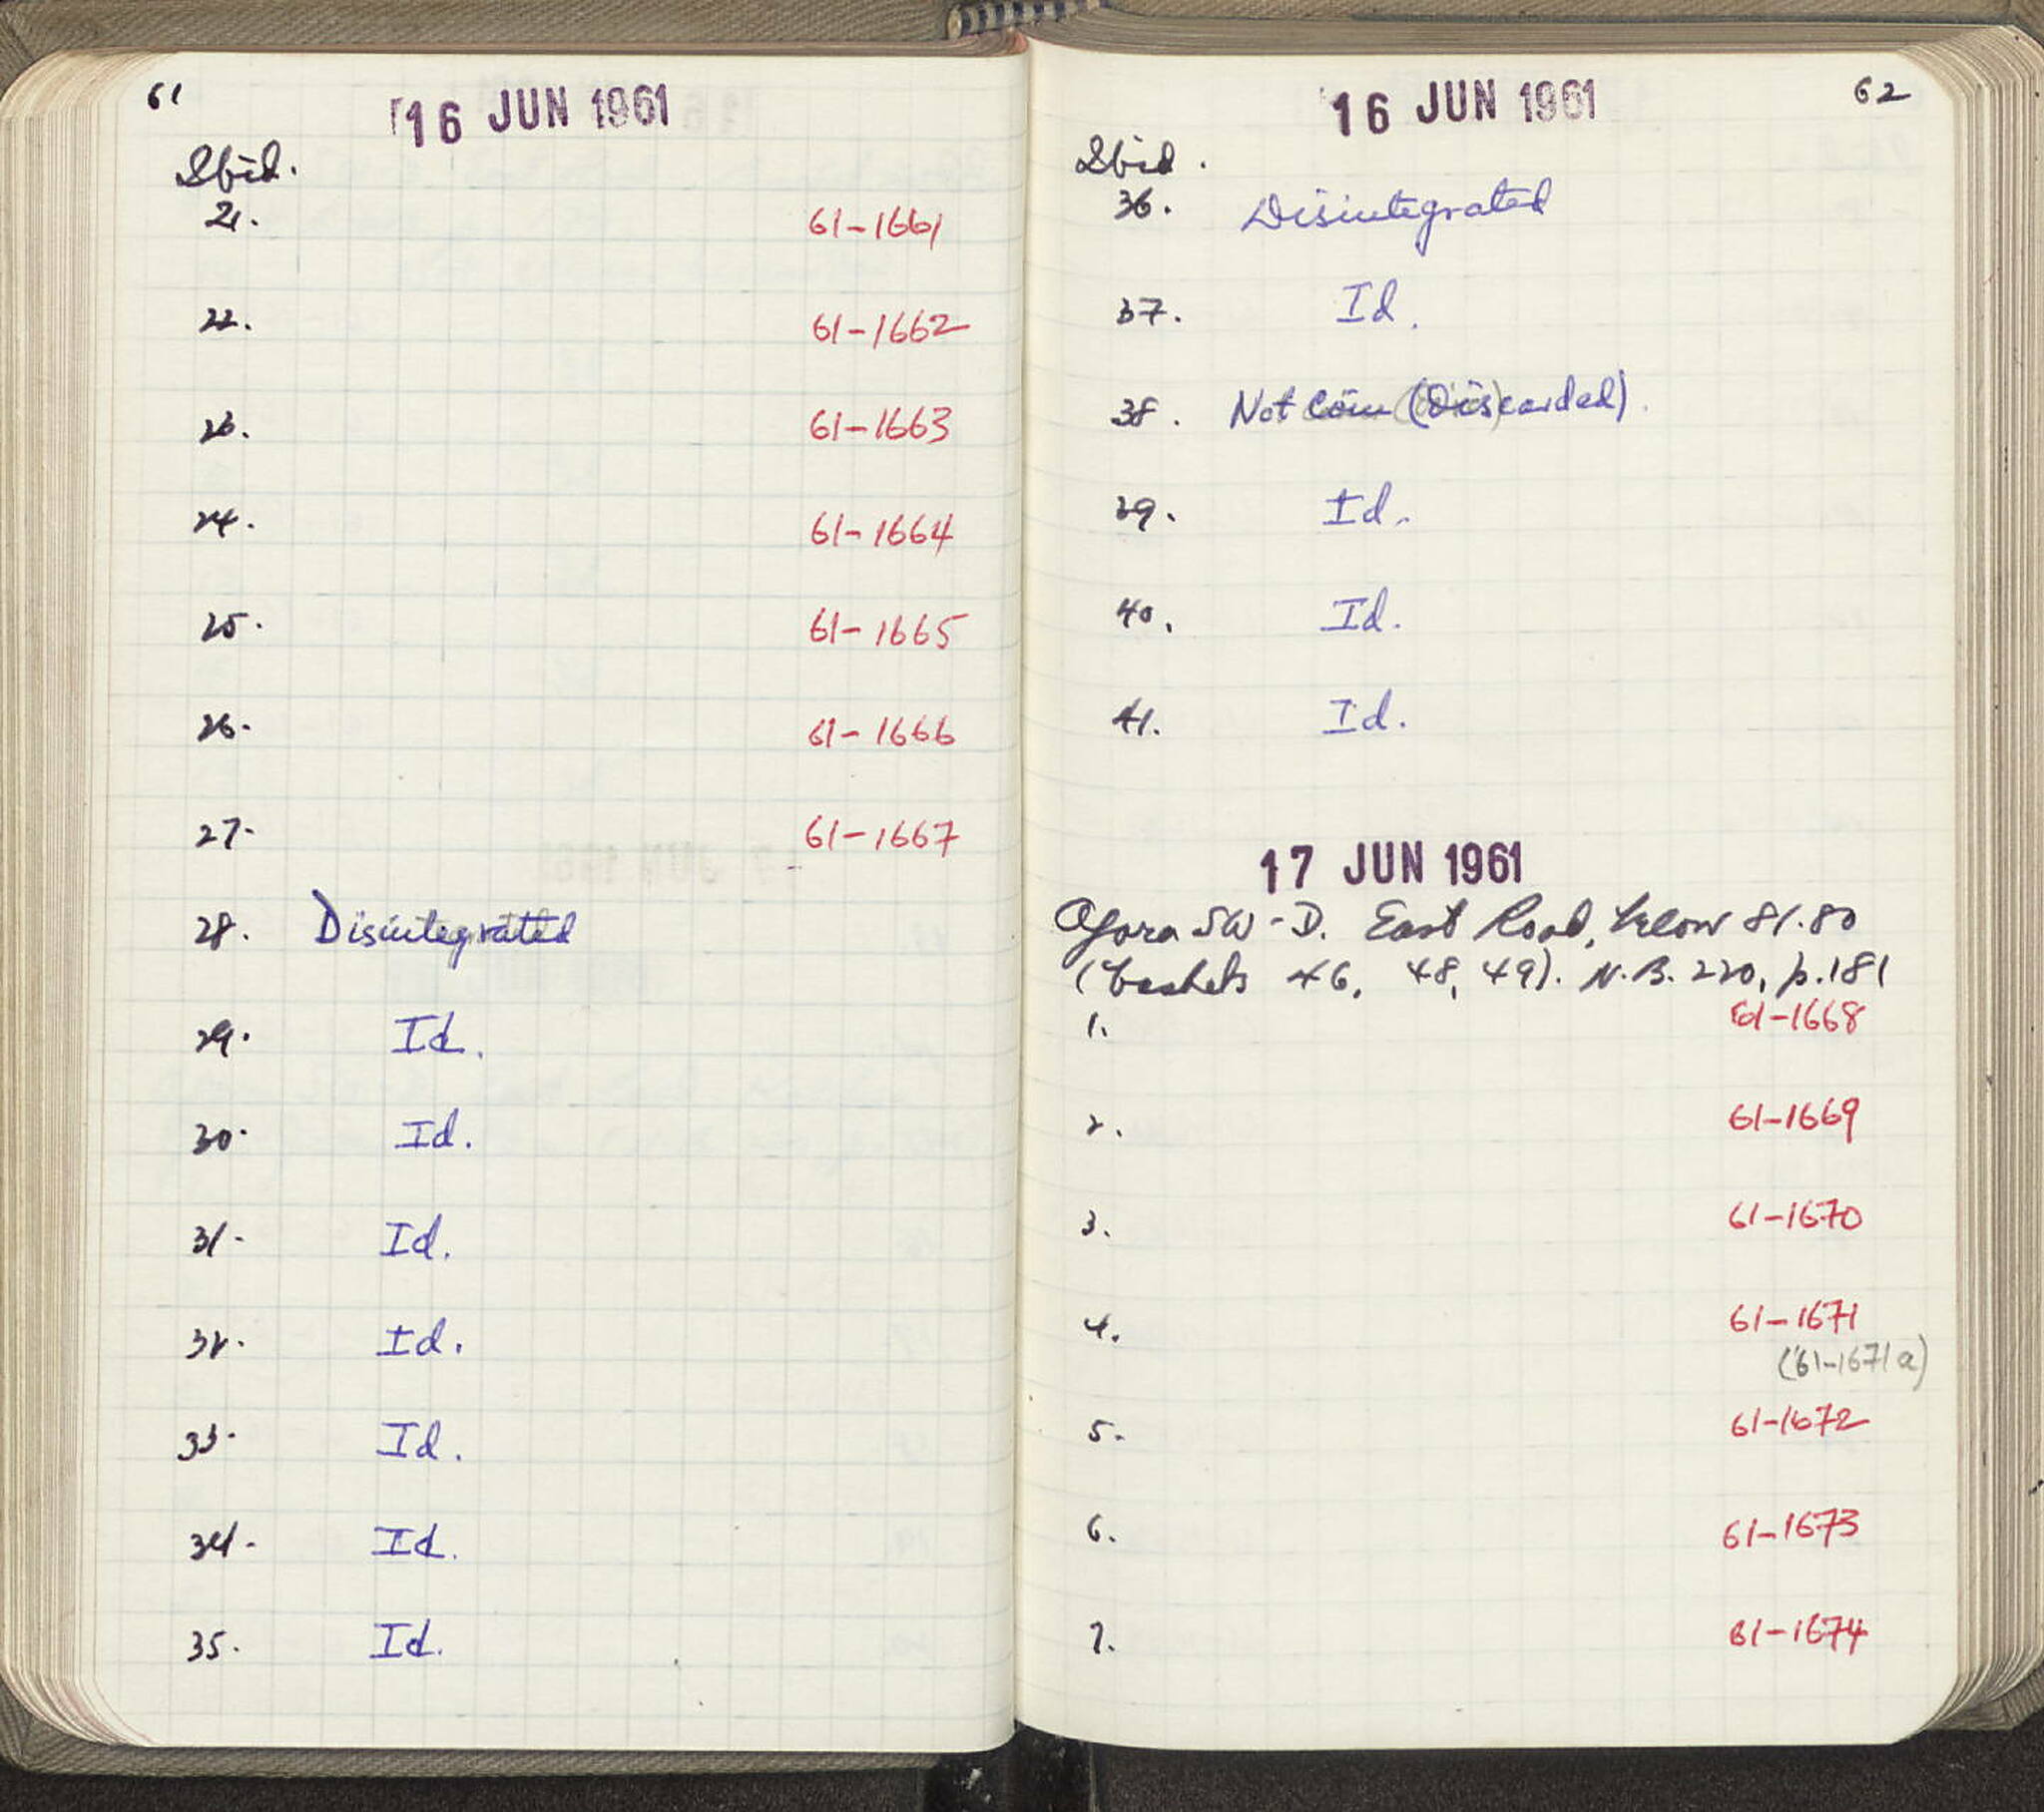 61
16 JUN 1961
Ibid.
21. 61-1661
22. 61-1662
23. 61-1663
24. 61-1664
25. 61-1665
26. 61-1666
27. 61-1667
28. Disintegrated
29. Id.
30. Id.
31. Id.
32. Id.
33. Id.
34. Id.
35. Id.
16 JUN 1961 62
Ibid.
36. Disintegrated
37. Id.
38. Not Coin (Discarded).
39. Id.
40. Id.
41. Id.
17 JUN 1961
Agora SW-D. East Road, below 81.80
(baskets 46, 48, 49). N.B. 220, p.181
1. 61-1668
2. 61-1669
3. 61-1670
4. 61-1671
(61-1671a)
5. 61-1672
6. 61-1673
7. 61-1674